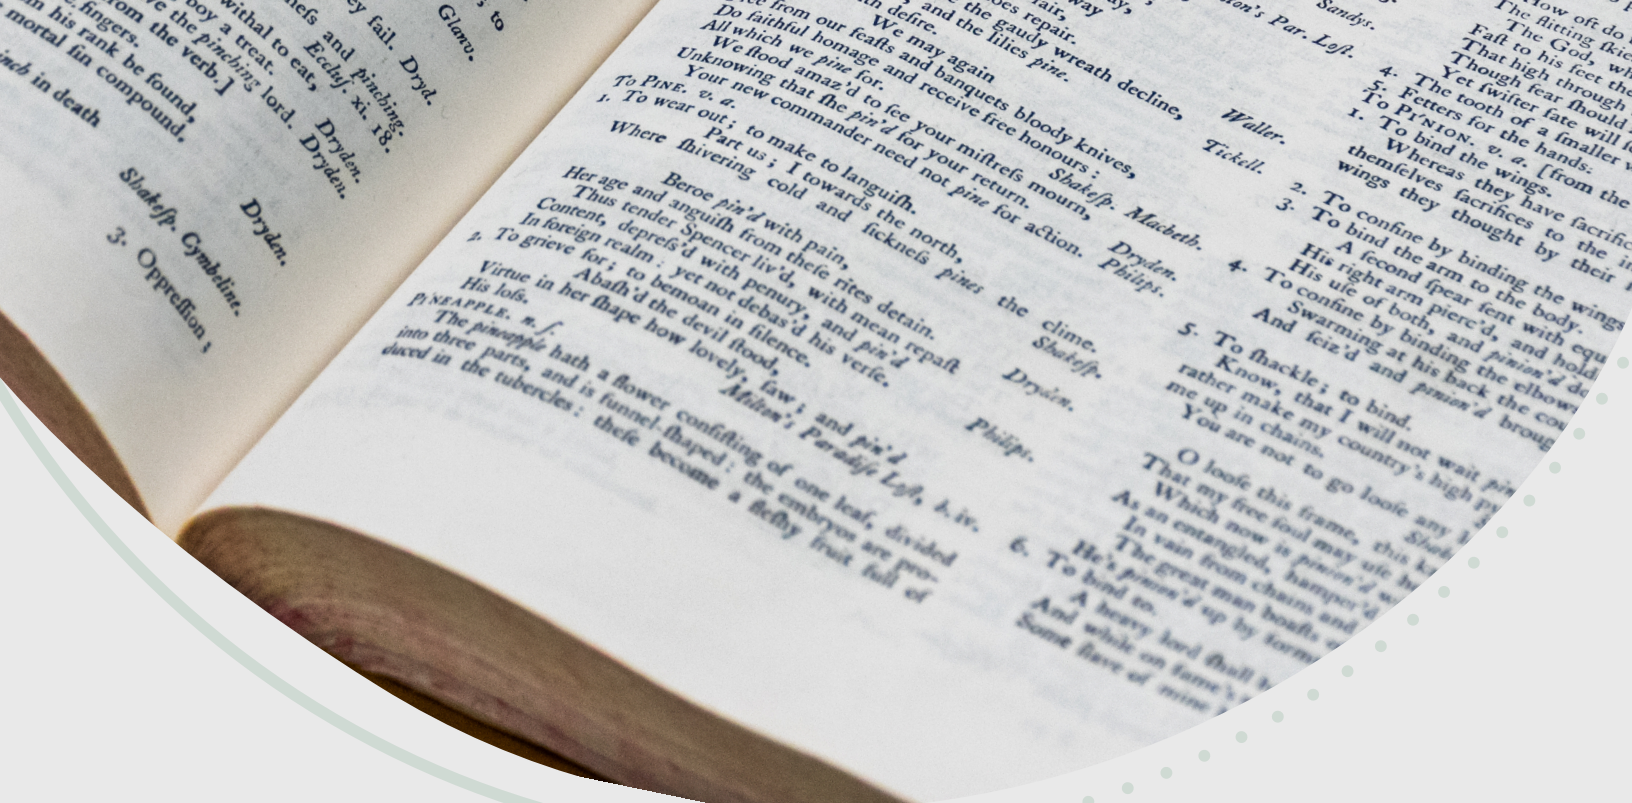 ; to
Glanv.
ey fail. Dryd.
neſs and pinching.
Eccluſ. xi. 18.
withal to eat,
boy a treat. Dryden.
ve the pinching lord. Dryden.
from the verb.]
fingers.
m his rank be found,
mortal ſin compound.
Dryden.
inch in death
Shakeſp. Cymbeline.
3. Oppreſſion ;
fair,
repair.
the gaudy wreath decline,
and the lilies pine. Waller.
th deſire.
We may again
from our feaſts and banquets bloody knives, Tickell.
Do faithful homage and receive free honours ;
All which we pine for. Shakeſp. Macbeth.
We ſtood amaz'd to ſee your miſtreſs mourn,
Unknowing that ſhe pin'd for your return. Dryden.
Your new commander need not pine for action. Philips.
To PINE. v. a.
1. To wear out ; to make to languiſh.
Part us ; I towards the north,
Where ſhivering cold and ſickneſs pines the clime.
Shakeſp.
Beroe pin'd with pain,
Her age and anguiſh from theſe rites detain. Dryden.
Thus tender Spencer liv'd, with mean repaſt
Content, depreſs'd with penury, and pin'd
In foreign realm : yet not debas'd his verſe. Philips.
2. To grieve for ; to bemoan in ſilence.
Abaſh'd the devil ſtood,
Virtue in her ſhape how lovely, ſaw ; and pin'd
His loſs. Milton's Paradiſe Loſt, b. iv.
PI'NEAPPLE. n. ſ.
The pineapple hath a flower conſiſting of one leaf, divided
into three parts, and is funnel-ſhaped : the embryos are pro-
duced in the tubercles : theſe become a fleſhy fruit full of
Sandys.
Par. Loſt.
How oft do
The flitting ſkie
The God,
Faſt to his feet the
That high through
Though fear ſhould
Yet ſwifter fate will
4. The tooth of a ſmaller
5. Fetters for the hands:
To PI'NION. v. a. [from the
1. To bind the wings.
Whereas they have ſacrific
themſelves ſacrifices to the
wings they thought by their
2. To confine by binding the wings
3. To bind the arm to the body.
A ſecond ſpear ſent with equ
His right arm pierc'd, and hold
His uſe of both, and pinion'd
4. To confine by binding the elbow
Swarming at his back the
And ſeiz'd and pinion'd broug
5. To ſhackle ; to bind.
Know, that I will not wait
rather make my country's high
me up in chains.
You are not to go looſe any
O looſe this frame, this
That my free ſoul may uſe
Which now is pinion'd
As an entangled, hamper'd
In vain from chains and
The great man boaſts
He's pinion'd up by
6. To bind to.
A heavy lord ſhall
And while on fame's
Some ſlave of mine